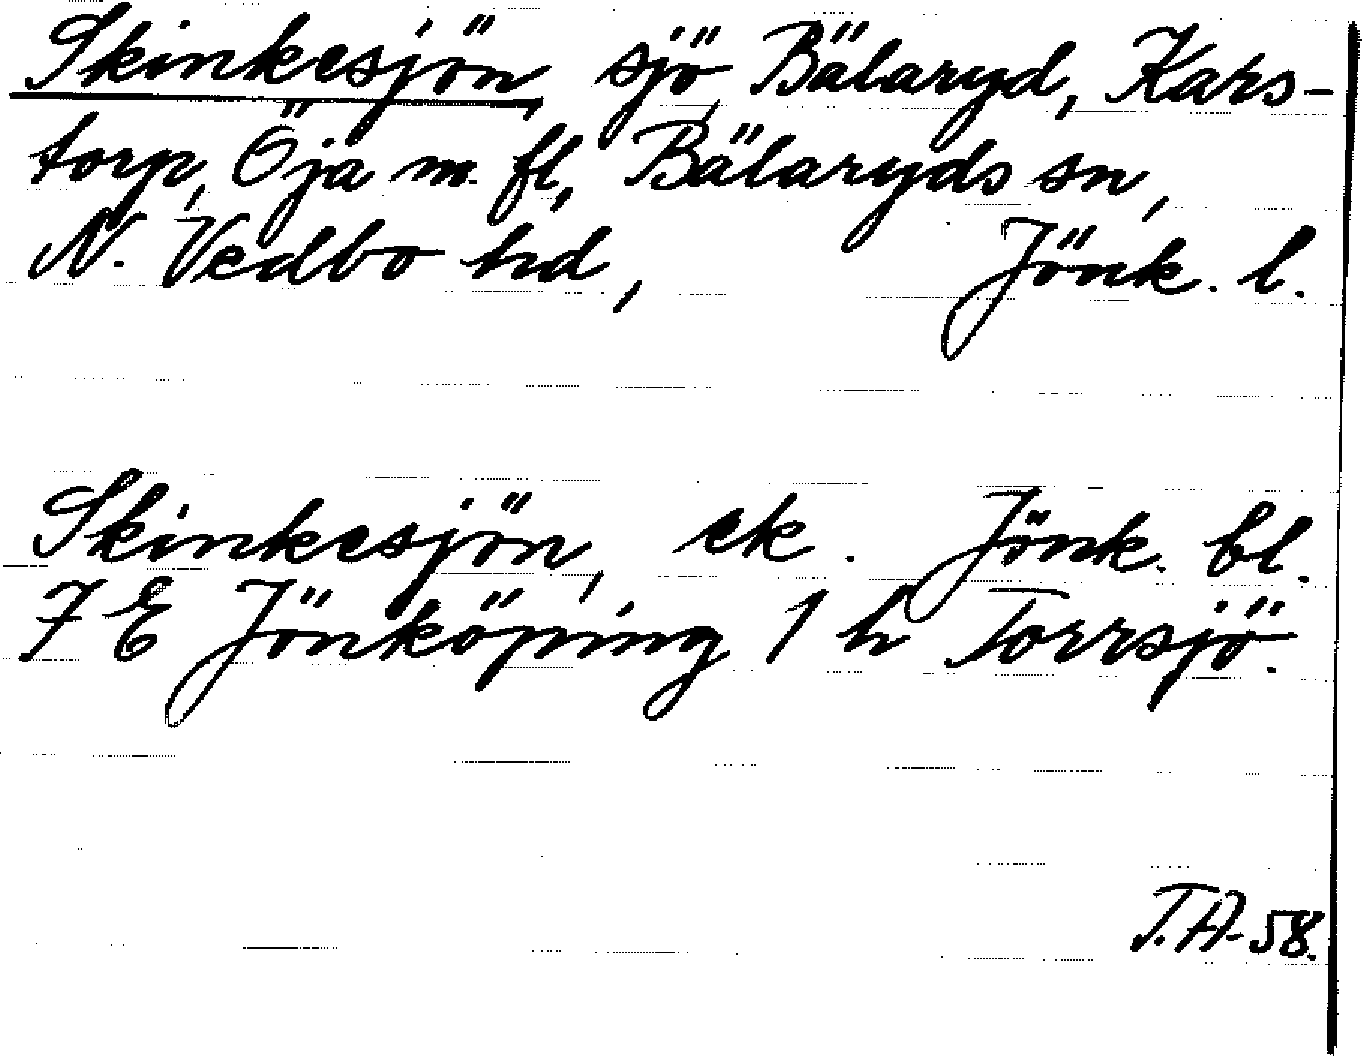 Skinkesjön, sjö, Bälaryd, Kars-
torp, Öja m. fl., Bälaryds sn,
N. Vedbo hd, Jönk. l.
Skinkesjön, ek. Jönk. bl.
7 E Jönköping 1 h Torrsjö.
T.A-58.